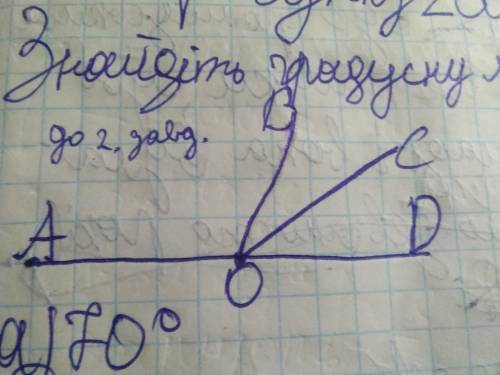 Знайдіть градусну
B
до 2. завд.
C
A
D
O
a) 70°